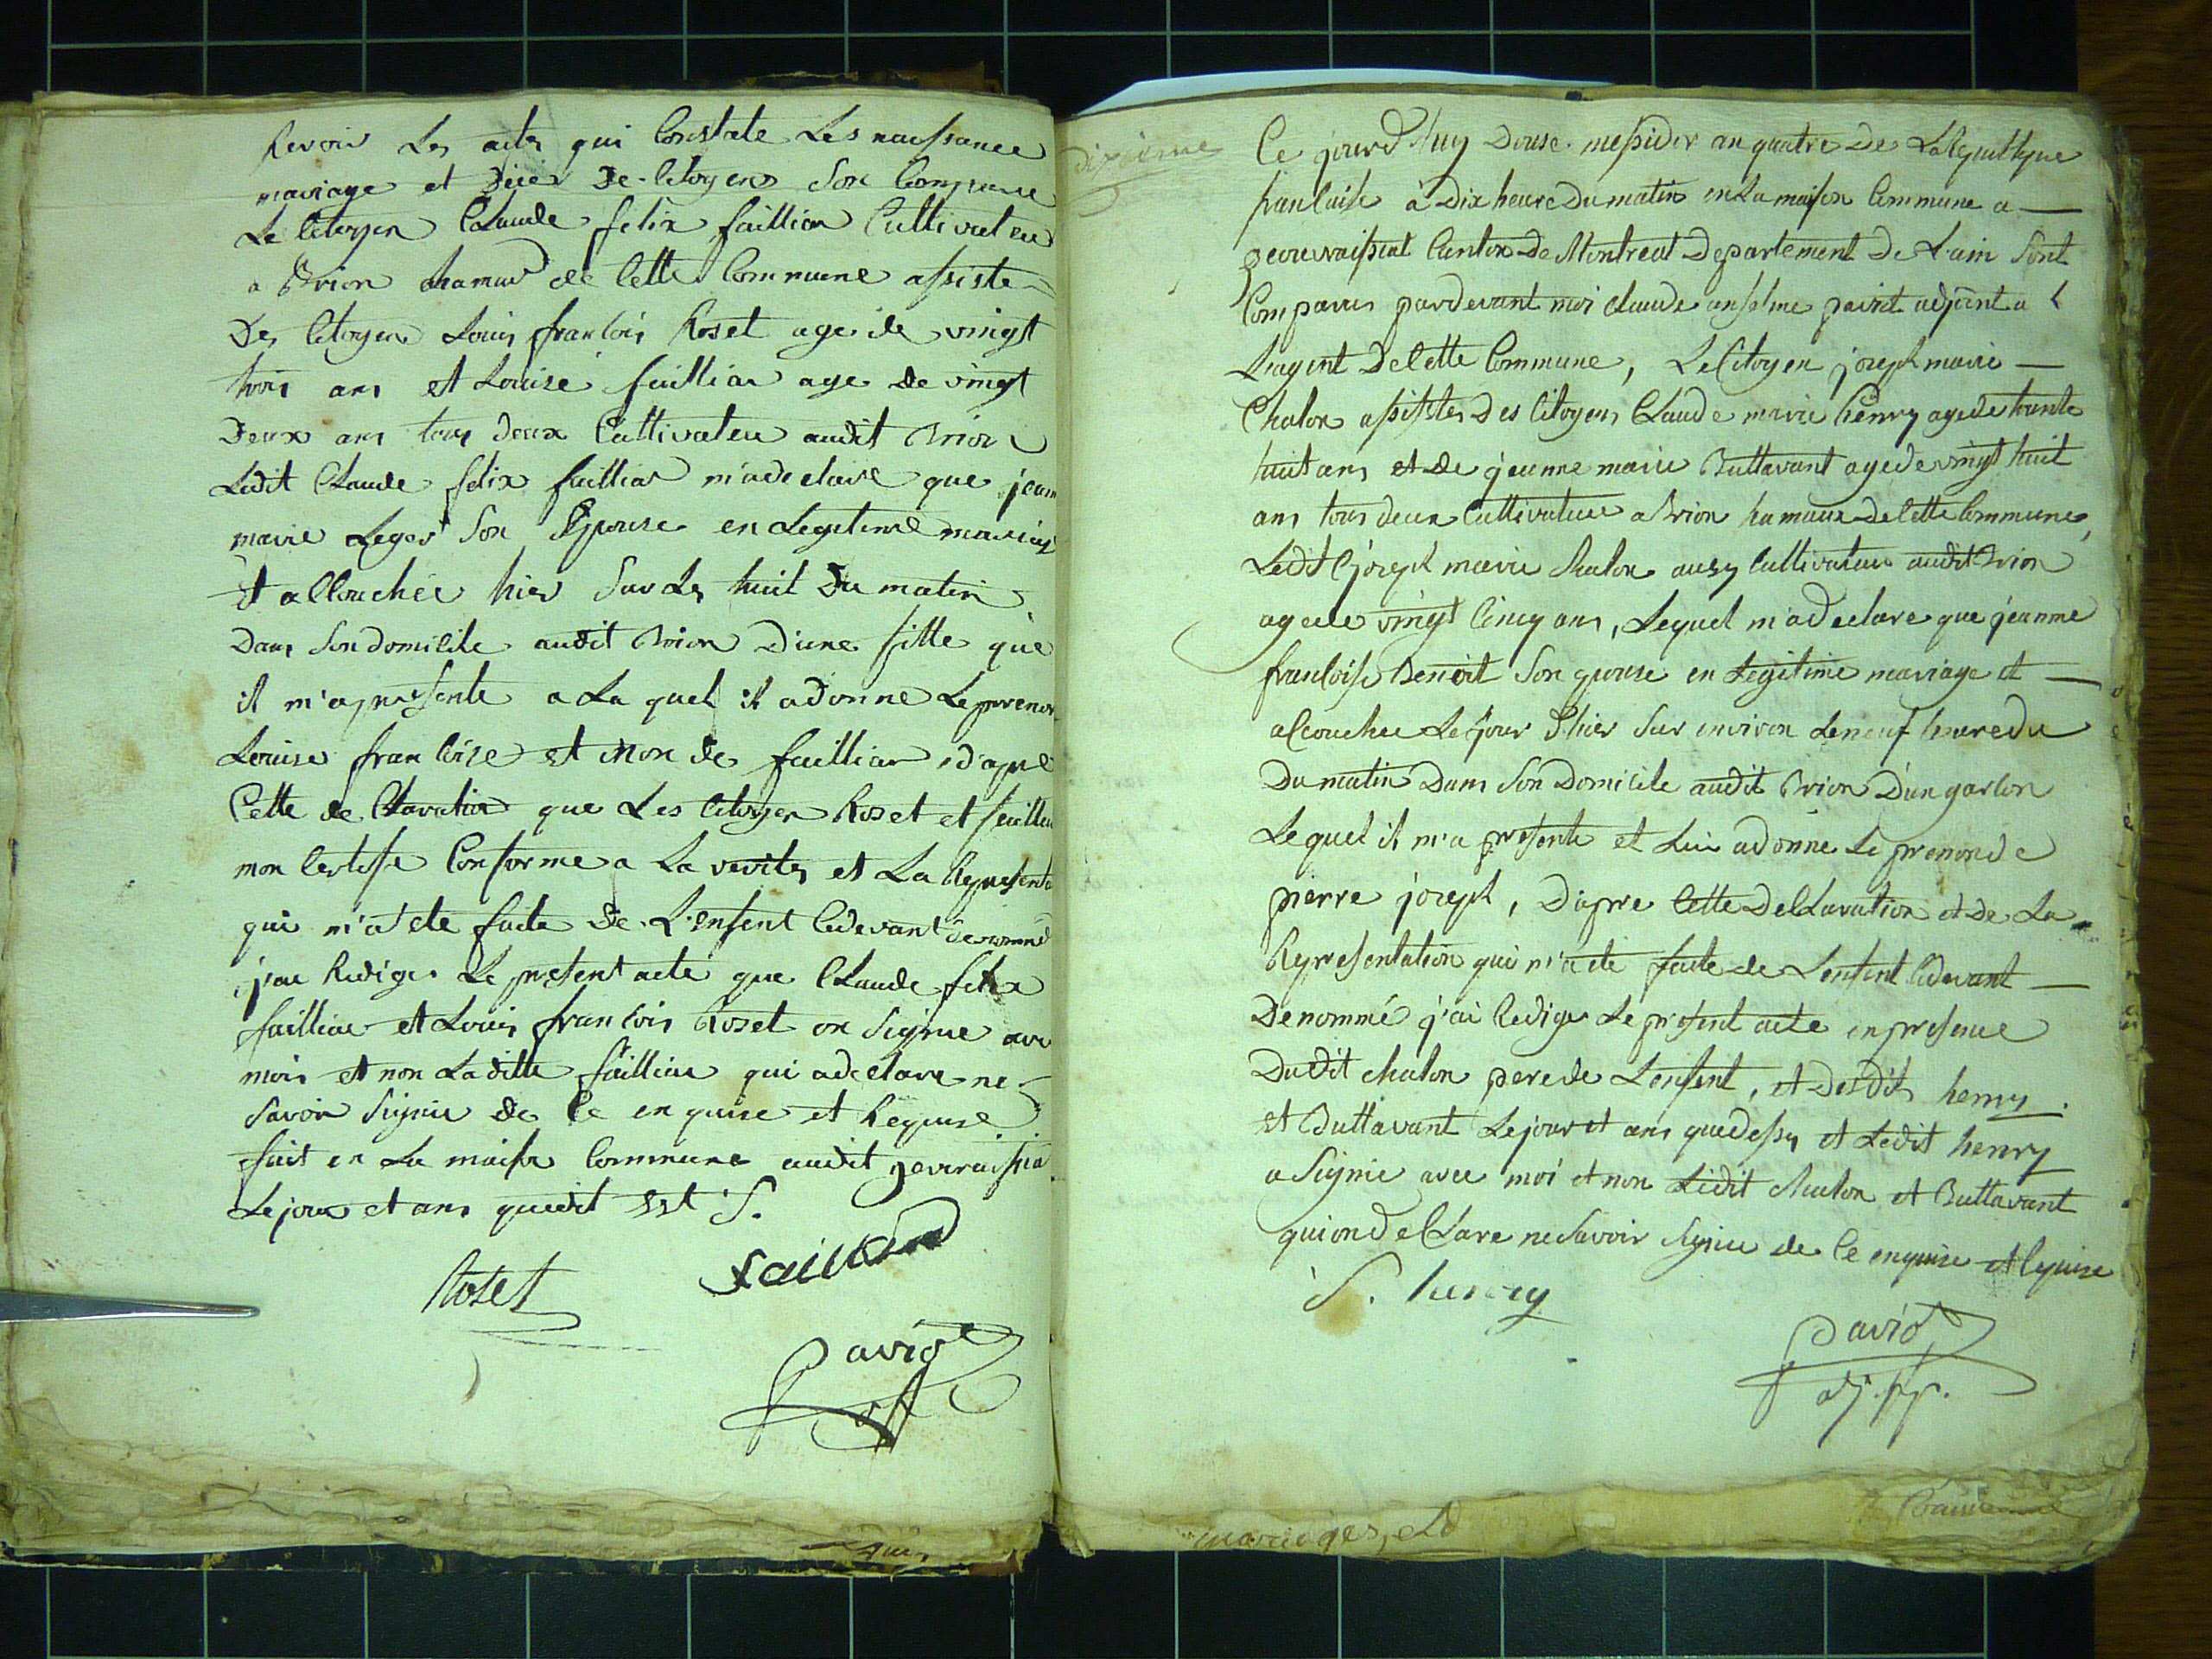 Revoir Les acte qui Constate Les naissance
mariage et De Citoyens Son Comparue
Le Citoyen Claude felix faillian Cultivateu
a Brion hamau de Cette Commune assiste
De Citoyen Louis francois Roset age de vingt
trois ans et Louise faillian age de vingt
Deux ans tous deux Cultivateu audit Brion
Ledit Claude felix faillian m'a declare que jean
marie Leger Son Epouse en Legitime mariag
Et accouchée hier Sur Les huit Du matin
Dans Son domicile audit Brion D'une fille que
il m'a presente a La quel il a donne Le prenom
Louise francoise et Non de faillian d'apre
Cette declaration que Les Citoyen Roset et faillia
mon Certifie Conforme a La verite et La Represent
qui m'a ete faite De L'enfent Cidevant denomme
j'ai Rediger Le present acte que Claude felix
faillian et Louis francois Roset on Signie avec
mois et non La ditte faillian qui a declare ne
Savoir Signie de Ce enquise et Requise
fait en La maison Commune audit geovraissia
Le jour et ans quedit Est S.
Roset
faillian
Pavid
dixieme
Ce jourd'huy Douse messidor an quatre de La Republique
francaise à Dix heure Du matin en La maison Commune a
geovraissiat Canton De Montreal Departement De L'ain Sont
Comparus par devant moi claude anselme pavid adjoint a
L'agent De Cette Commune, Le Citoyen joseph marie
Chalon assistes Des Citoyens Claude marie henry age de trante
huit ans et de jeanne marie Buttavant age de vingt huit
ans tous deux Cultivateur a Brion hamaux de Cette Commune,
Ledit joseph marie Chalon ausy Cultivateur audit Brion
age de vingt Cinq ans, Lequel m'a declare que jeanne
francoise Benoit Son epouse en Legitime mariage et
accouchee Le jour D'hier Sur environ Le neuf heure du
Du matin Dans Son Domicile audit Brion D'un garcon
Le quel il m'a presente et Lui a donne Le prenon de
pierre joseph, D'apre Cette Declaration et De La
Representation qui m'a ete faite de L'enfent Cidevant
Denommé j'ai Rediger Le present acte en presence
Dudit chalon pere de L'enfent, et Desdits henry
et Buttavant Le jour et ans que dessus et Ledit henry
a Signie avec moi et non Ledit Chalon et Buttavant
qui on declare ne Savoir Signie de Ce enquise et Requise
S. henry
Pavid
adj.
mariages, et